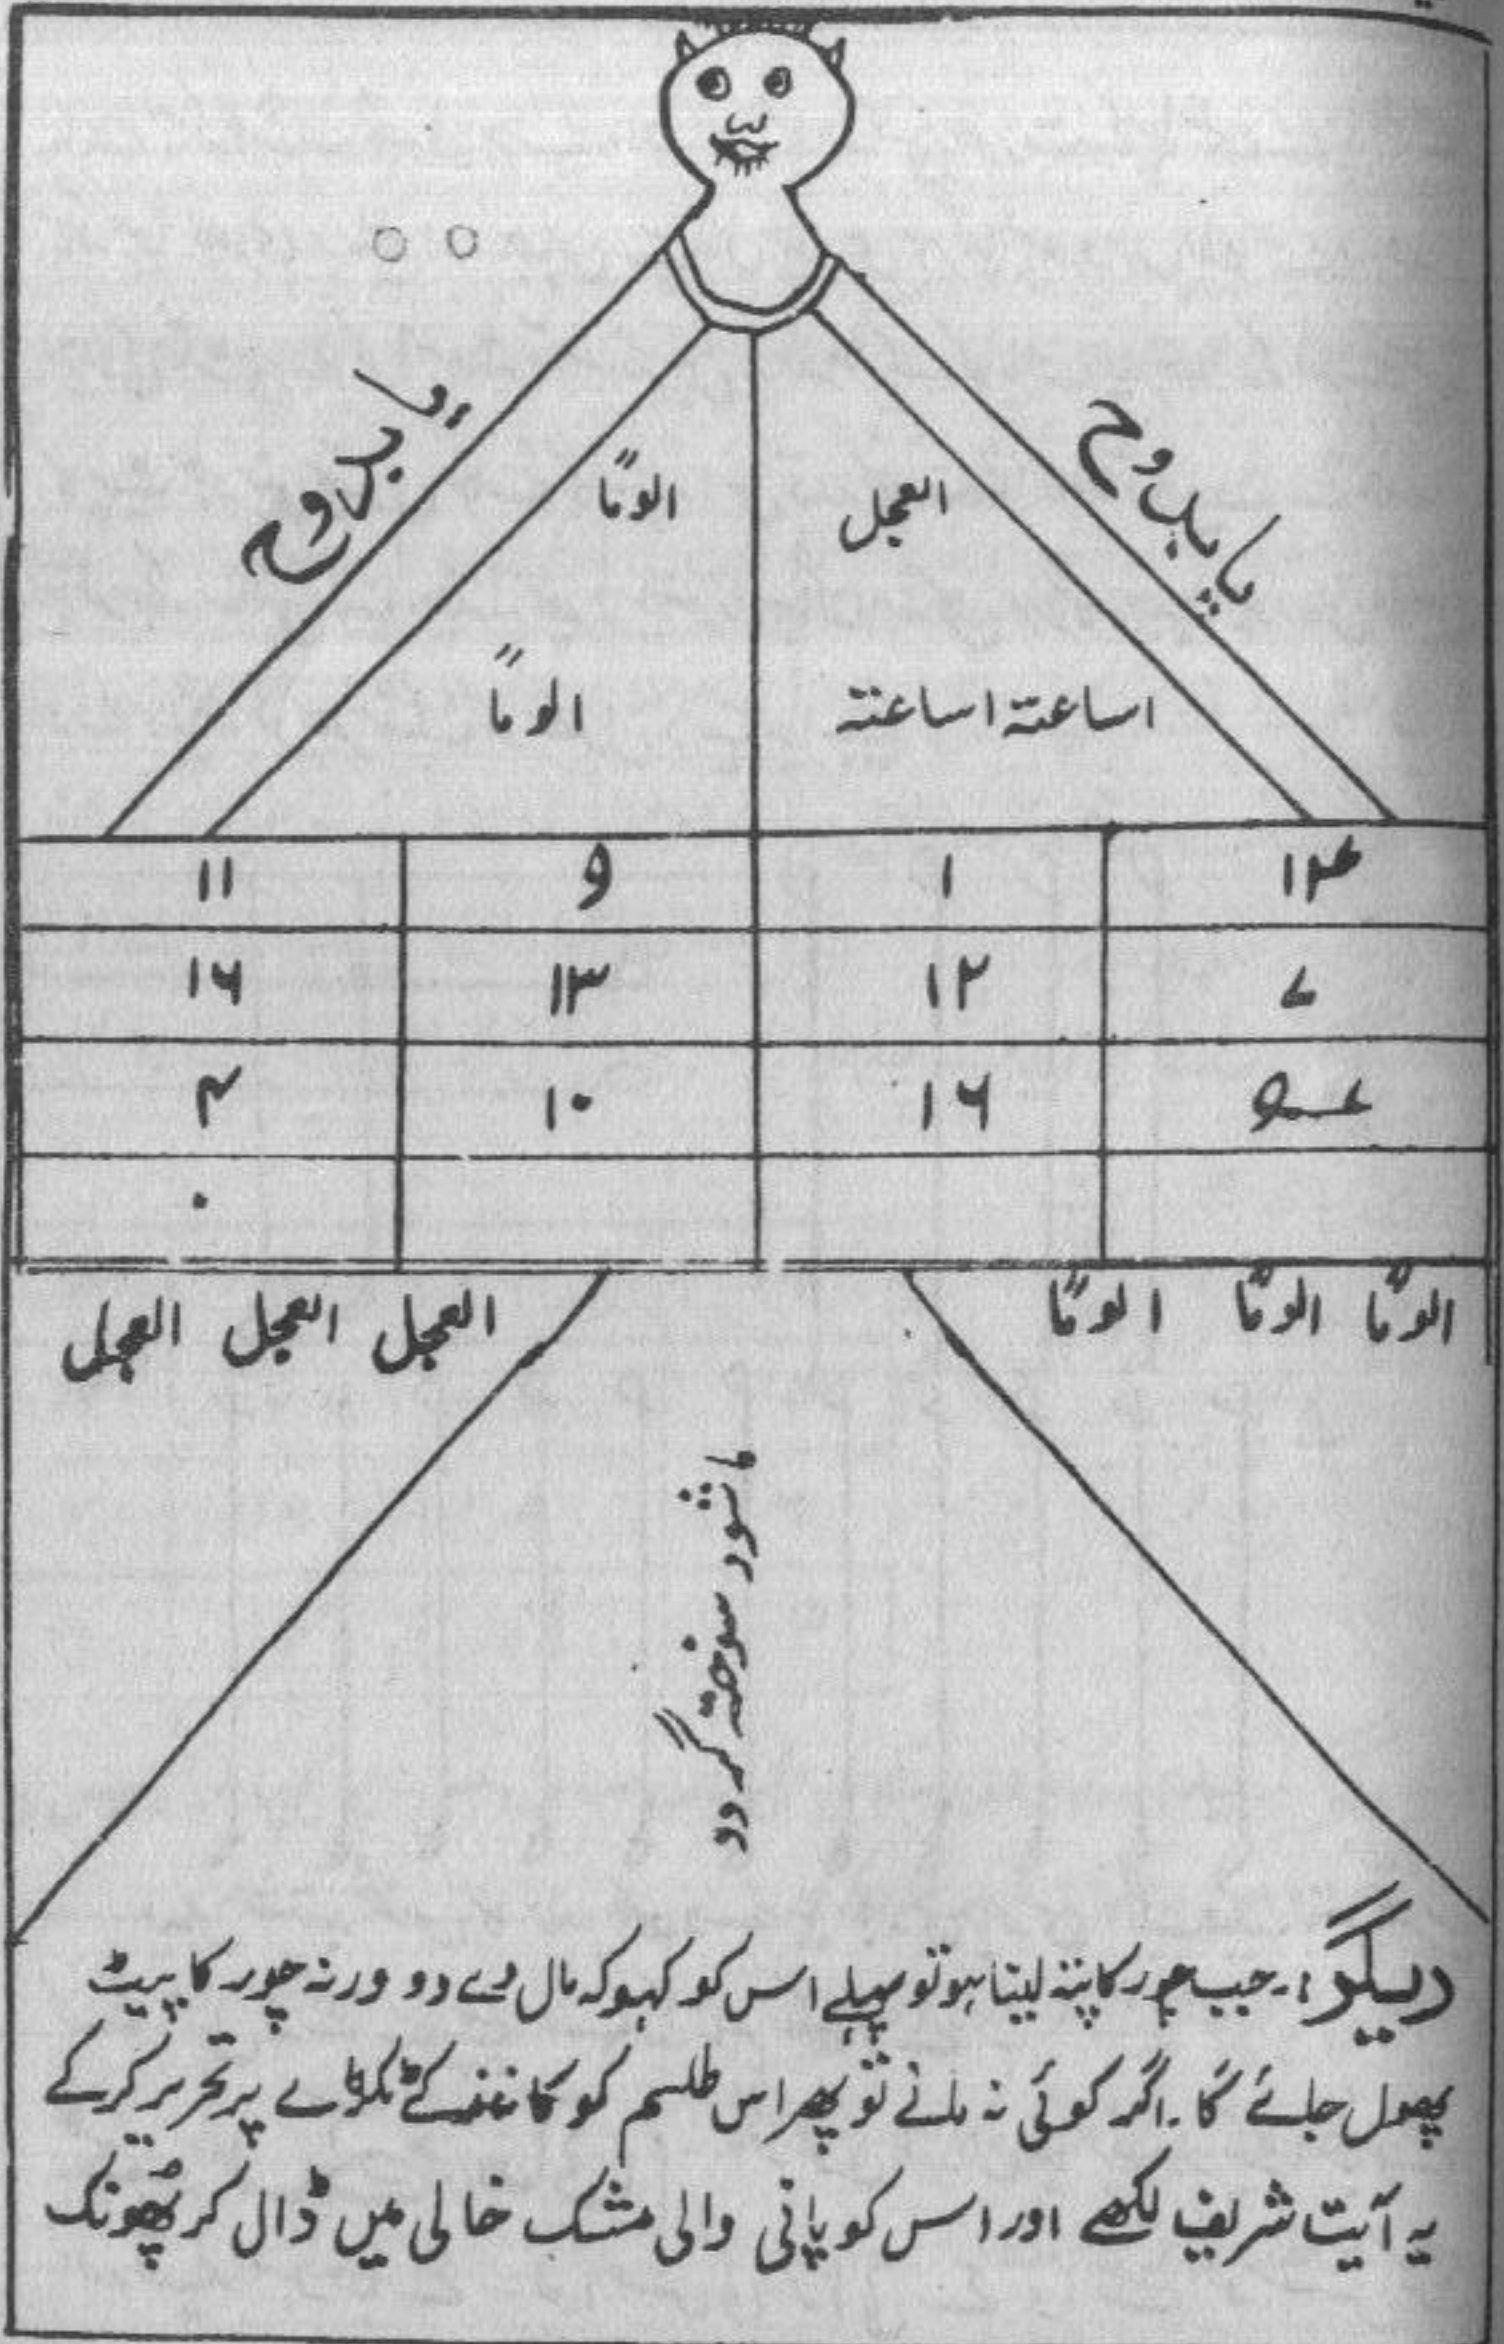 یا بدوح
یا بدوح
العجل
الومًا
اساعتہ اساعتہ
الومًا
۱۱ ۹ ۱ ۱۴
۱۶ ۱۳ ۱۲ ۷
۴ ۱۰ ۱۶
۰
الومًا الومًا الومًا
العجل العجل العجل
ما شود سوختہ گردد
دیگر:۔ جب چور کا پتہ لینا ہو تو پہلے اس کو کہو کہ مال دے دو ورنہ چور کا پیٹ
پھول جائے گا۔ اگر کوئی نہ مانے تو پھر اس طلسم کو کاغذ کے ٹکڑے پر تحریر کر کے
یہ آیت شریف لکھے اور اس کو پانی والی مشک خالی میں ڈال کر پُھونک